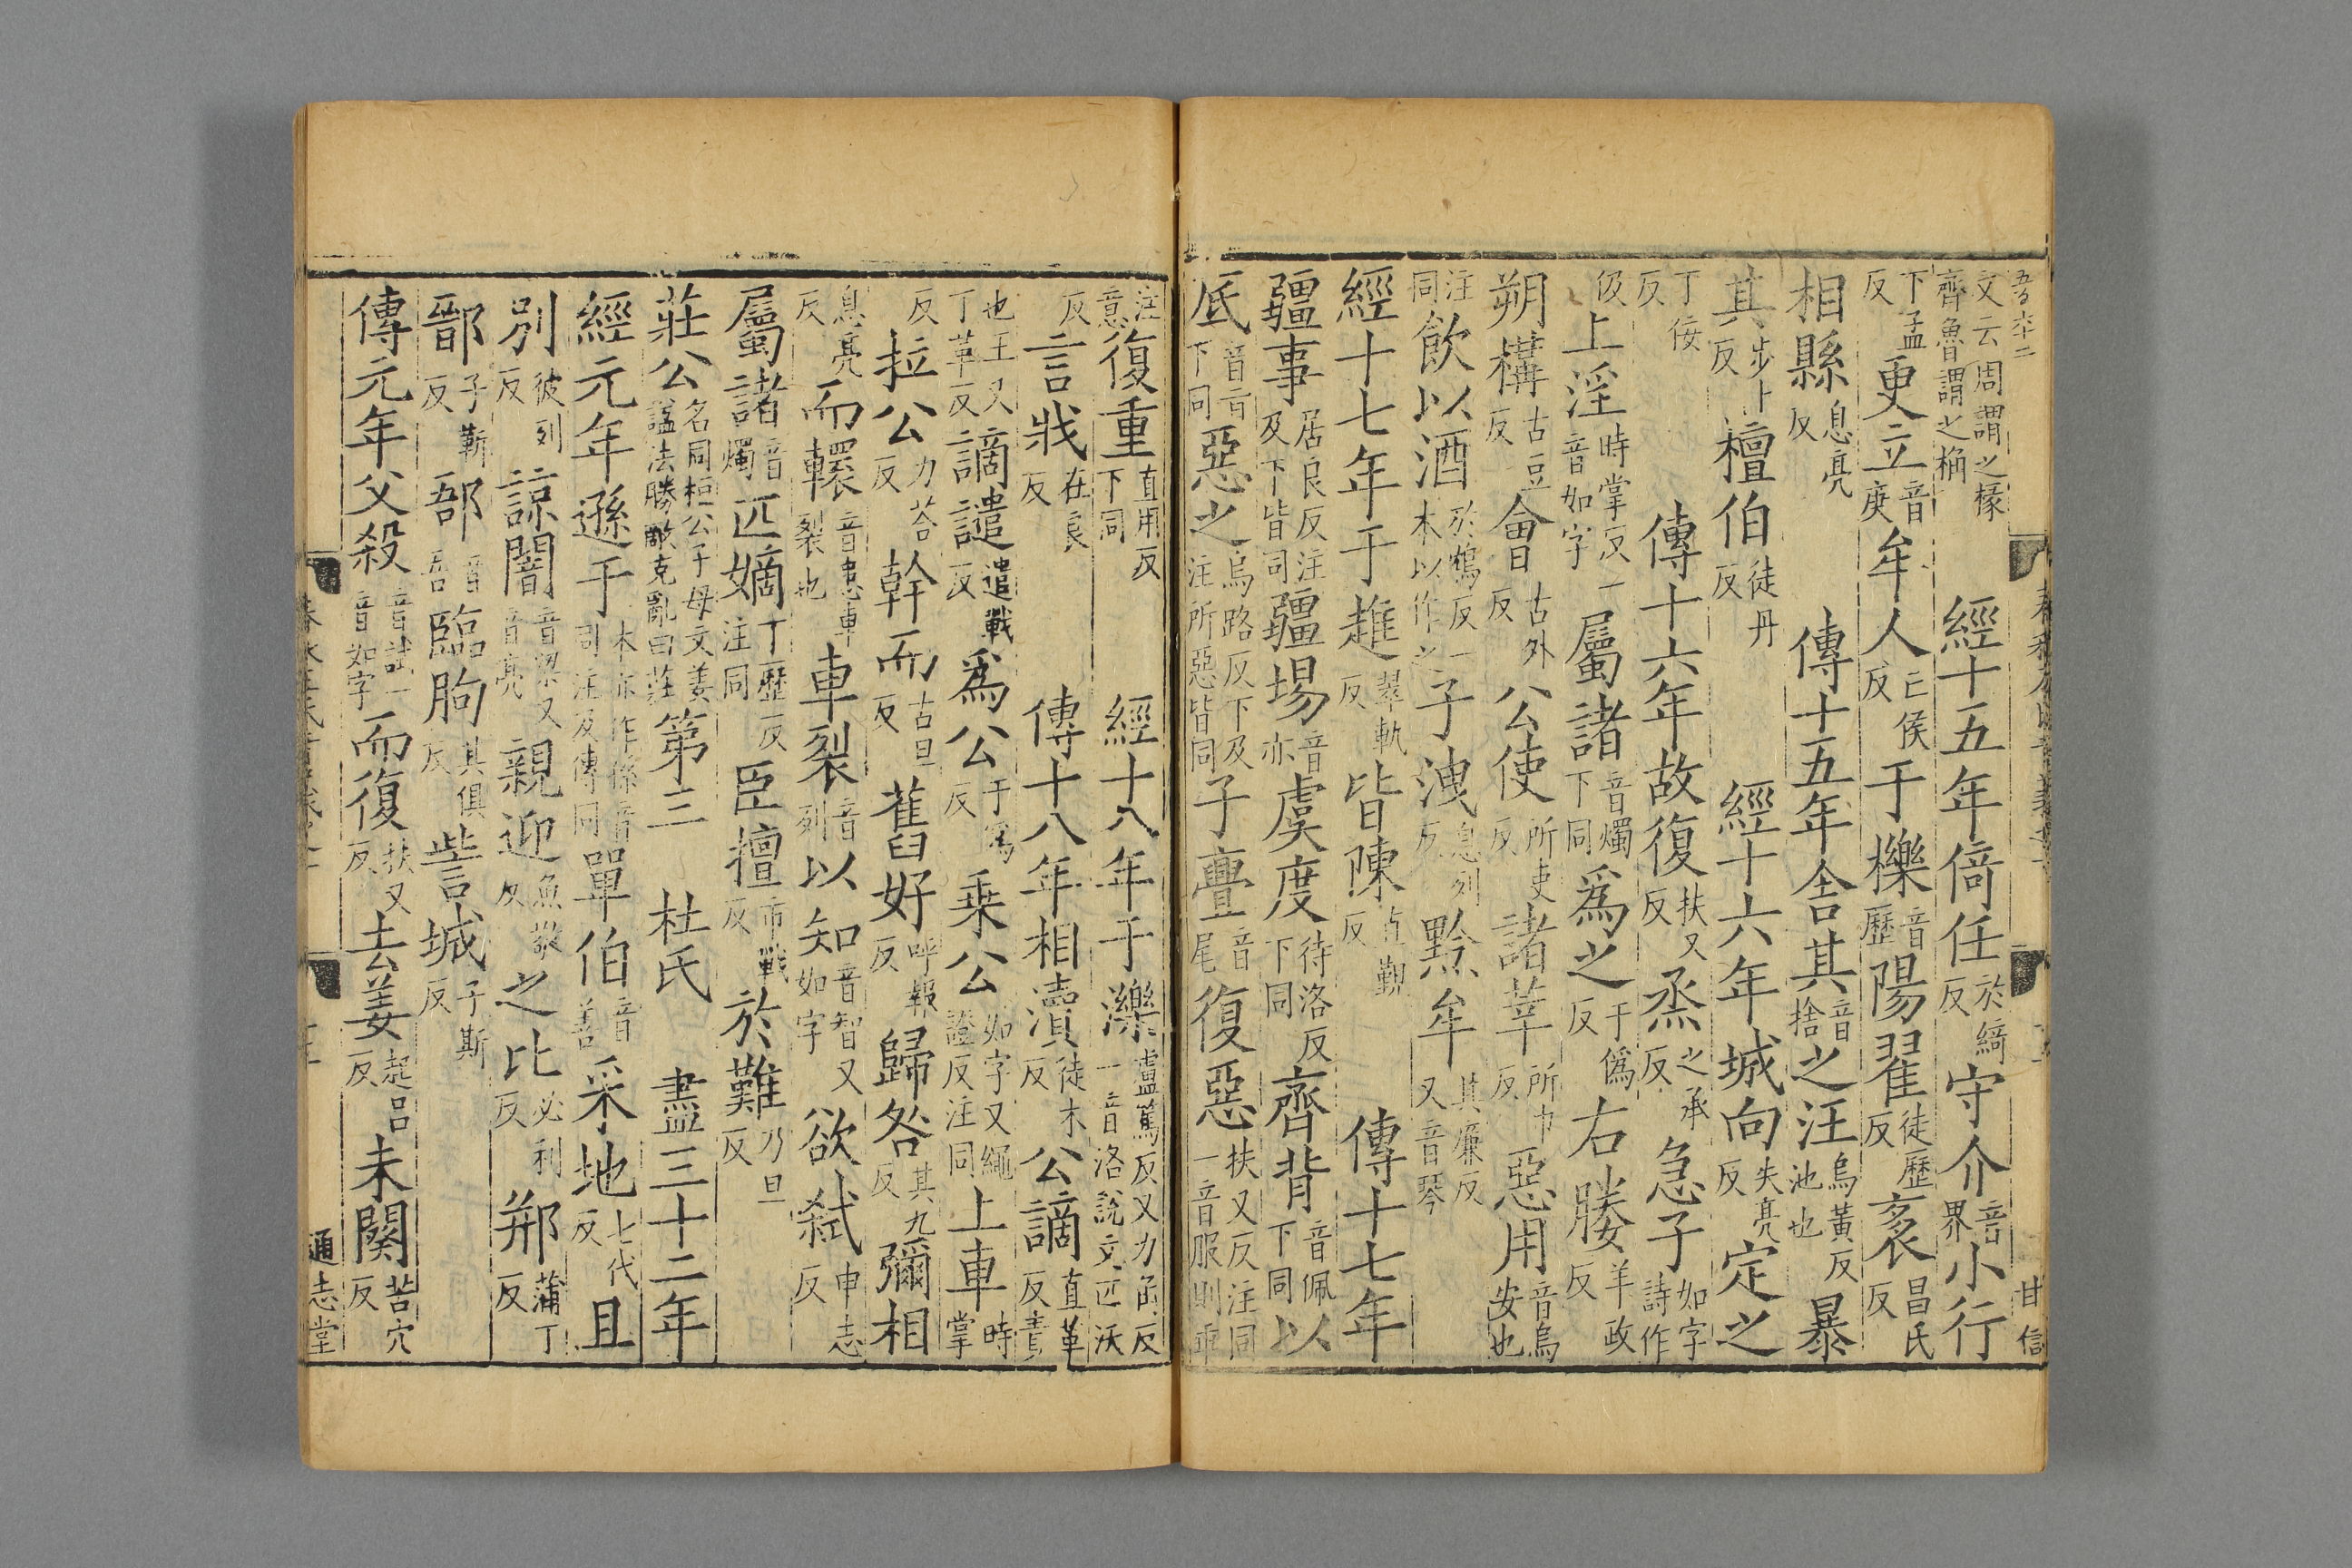 文云周謂之椽齊魯謂之桷 經十五年倚任於綺反守介音界小行
下孟反更立音庚牟人亡侯反于櫟音歷陽翟徒歷反袤昌氏反
相縣息亮反 傳十五年舍其音捨之汪烏黃反池也暴
其步卜反檀伯徒丹反 經十六年城向失亮反定之
丁佞反 傳十六年故復扶又反烝之承反急子如字詩作
伋上淫時掌反一音如字屬諸音燭下同爲之于僞反右媵羊政反
朔構古豆反會古外反公使所吏反諸莘所巾反惡用音烏安也
注同飲以酒於鴆反一本以作之子洩息列反黔牟其廉反又音琴
經十七年于趡翠軌反皆陳直覲反 傳十七年
疆事居良反注及下皆同疆埸音亦虞度待洛反下同齊背音佩下同以
底音旨下同惡之烏路反下及注所惡皆同子亹音尾復惡扶又反注同一音服則乖
注意復重直用反下同 經十八年于濼盧篤反又力角反一音洛說文匹沃
反言戕在良反 傳十八年相瀆徒木反公謫直革反責
也王又丁革反謫譴遣戰反爲公于寫反乘公如字又繩證反注同上車時掌
反拉公力荅反幹而古旦反舊好呼報反歸咎其九反彌相
息亮反而轘音患車裂也車裂音列以知音智又如字欲弑申志反
屬諸音燭匹嫡丁歷反注同臣擅市戰反於難乃旦反
莊公名同桓公子母文姜謚法勝敵克亂曰莊第三 杜氏 盡三十二年
經元年遜于本亦作孫音同注及傳同單伯音善采地七代反且
別彼列反諒闇音梁又音亮親迎魚敬反之比必利反郱蒲丁反
鄑子斯反郚音吾臨朐其俱反訾城子斯反
傳元年父殺音試一音如字而復扶又反去姜起呂反未闋苦穴反
通志堂
甘信